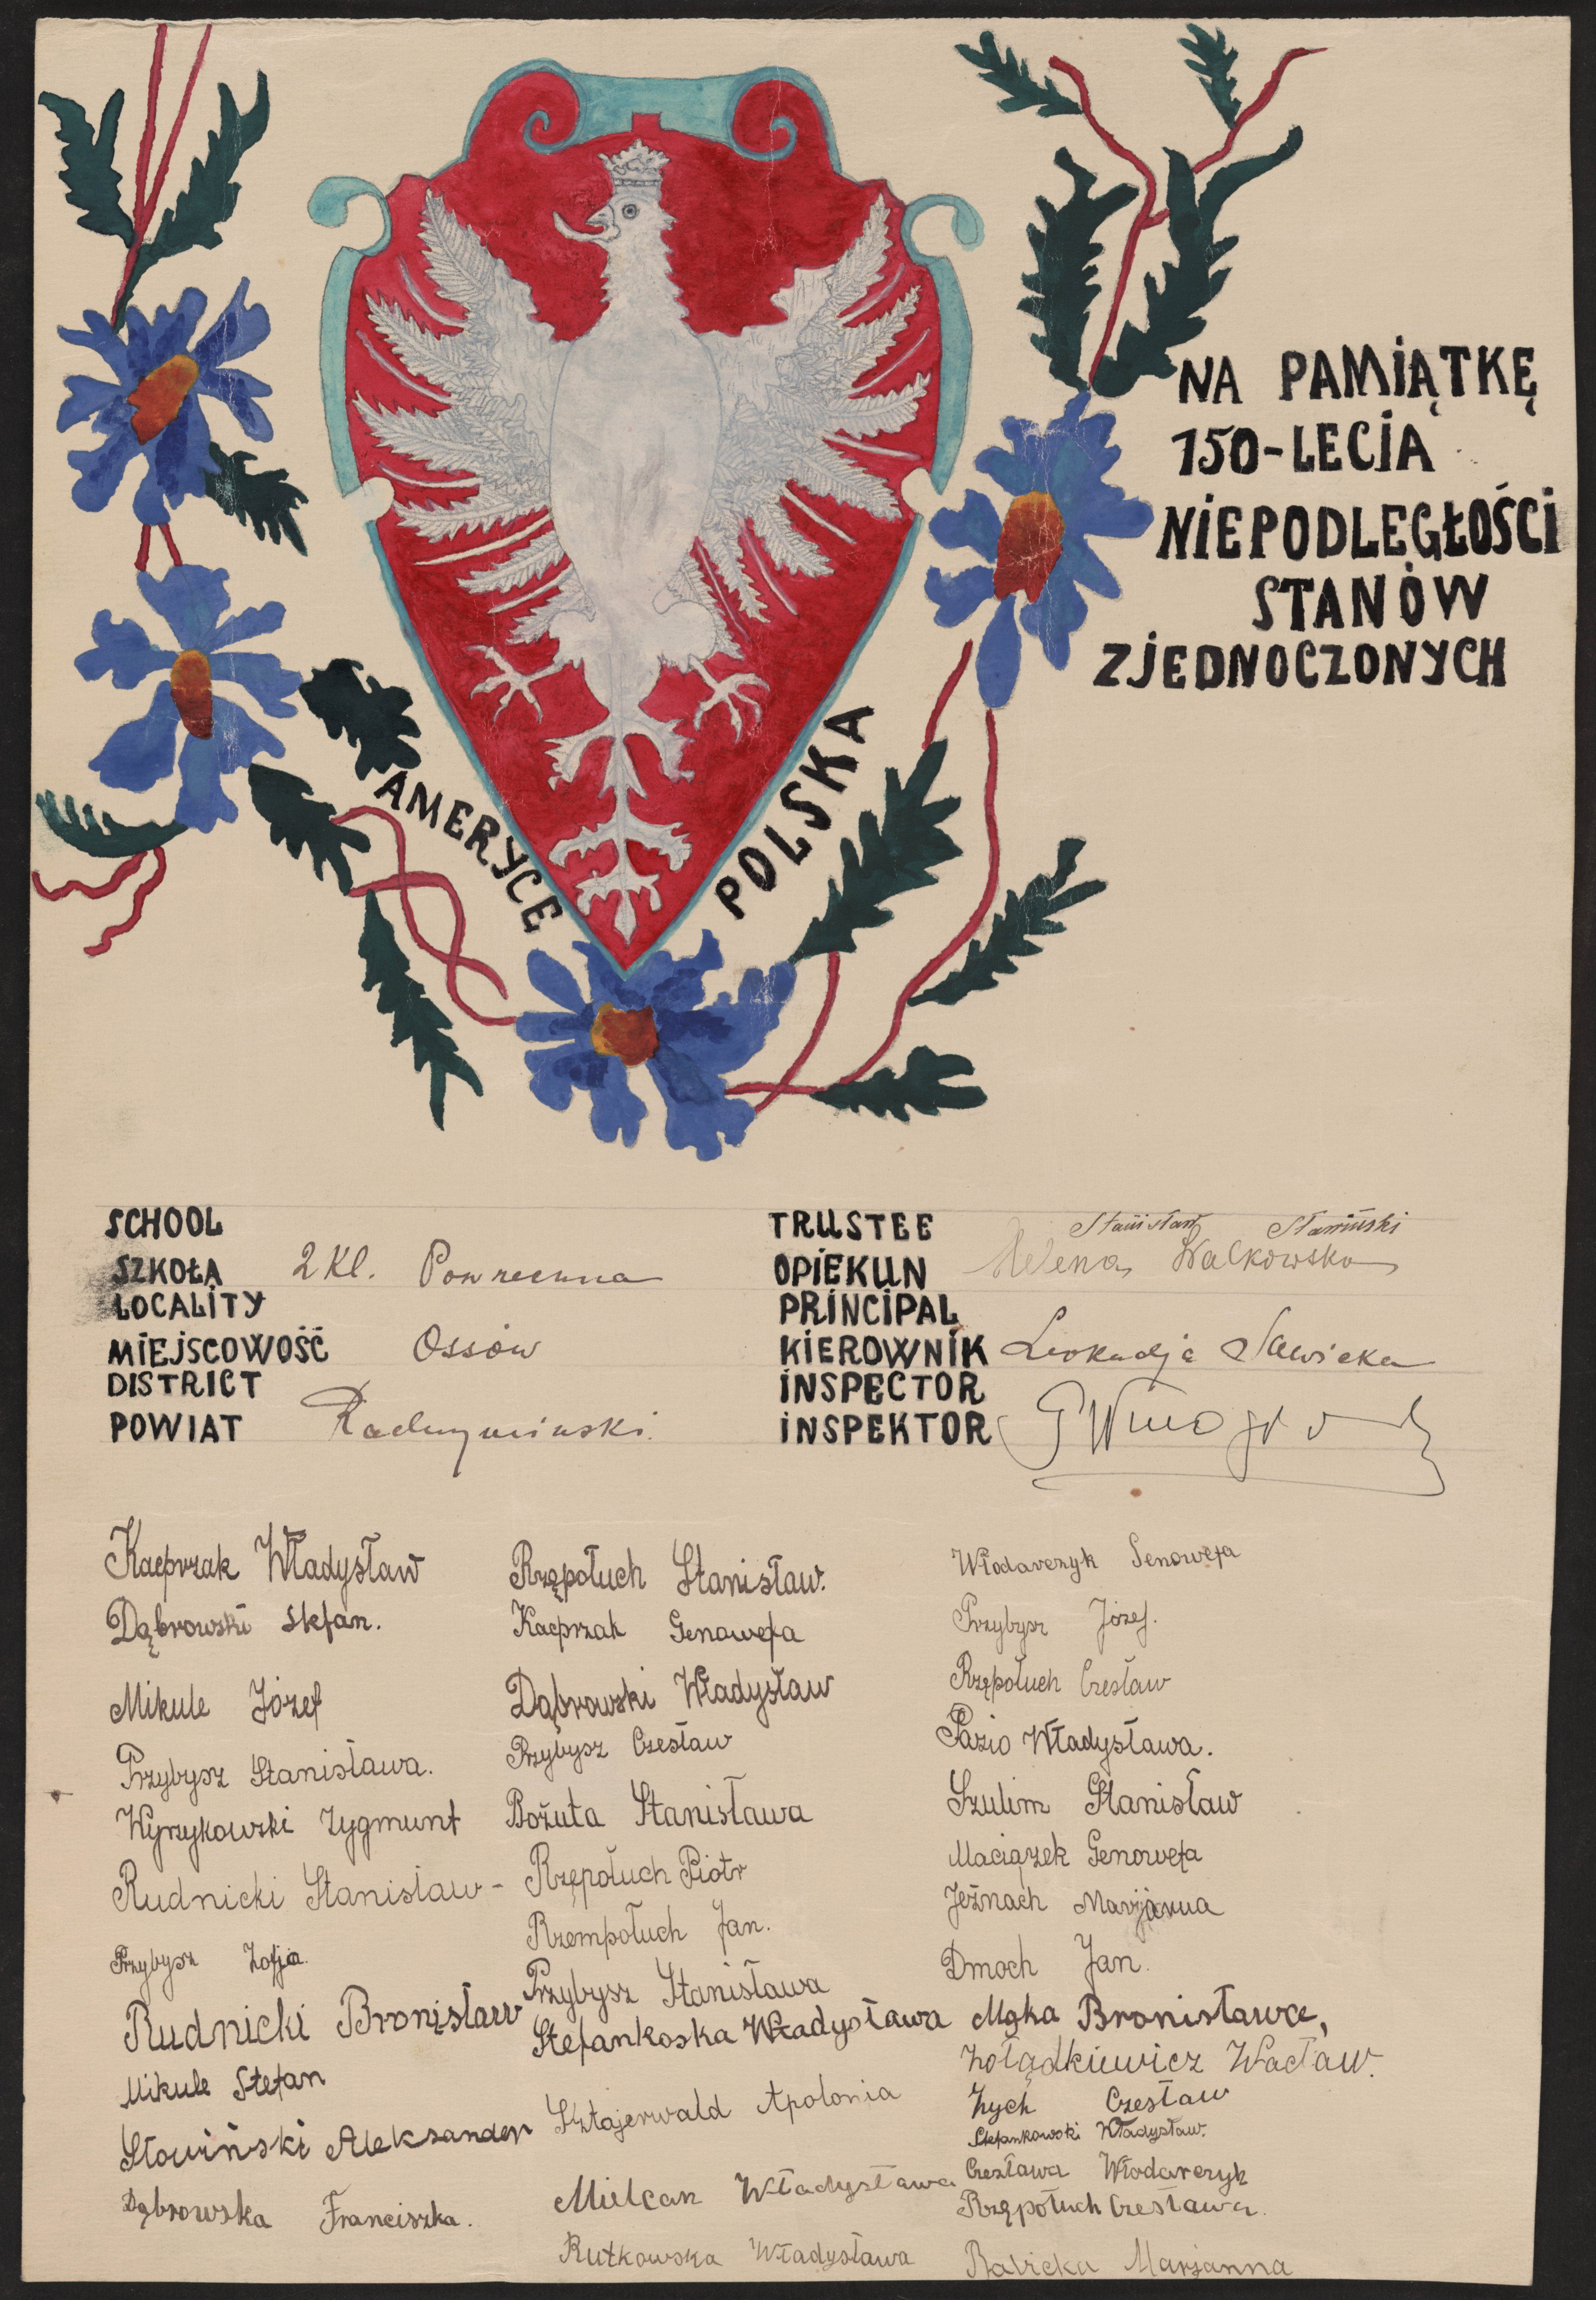 NA PAMIĄTKĘ
150-LECIA
NIEPODLEGŁOŚCI
STANÓW
ZJEDNOCZONYCH
AMERYCE POLSKA
SCHOOL
SZKOŁA 2 Kl. Powszechna
LOCALITY
MIEJSCOWOŚĆ Ossów
DISTRICT
POWIAT Radzymiński.
TRUSTEE Stanisław Sławiński
OPIEKUN Helena Walkowska
PRINCIPAL
KIEROWNIK Leokadja Sawicka
INSPECTOR
INSPEKTOR
Kacprzak Władysław
Dąbrowski Stefan.
Mikule Józef
Przybysz Stanisława.
Wyrzykowski Zygmunt
Rudnicki Stanisław-
Przybysz Zofja.
Rudnicki Bronisław
Mikule Stefan
Słowiński Aleksander
Dąbrowska Franciszka.
Rzępołuch Stanisław.
Kacprzak Genowefa
Dąbrowski Władysław
Przybysz Czesław
Bożuta Stanisława
Rzępołuch Piotr
Rzempołuch Jan.
Przybysz Stanisława
Stefankoska Władysława
Sztajerwald Apolonia
Mielcak Władysława
Rutkowska Władysława
Włodarczyk Genowefa
Przybysz Józef.
Rzępołuch Czesław
Pazio Władysława.
Szulim Stanisław
Maciązek Genowefa
Jeżnach Marjanna
Dmoch Jan.
Mąka Bronisława,
Żołądkiewicz Wacław.
Zych Czesław
Stefankowski Władysław.
Czesława Włodarczyk
Rzępołuch Czesława.
Babicka Marjanna